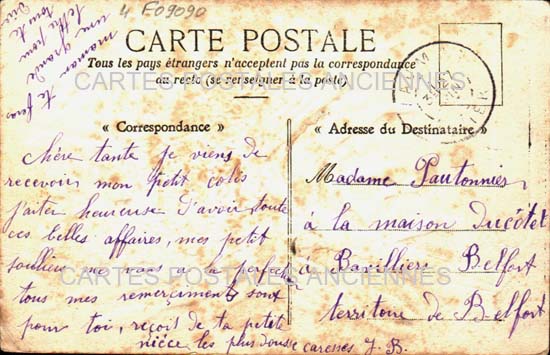 4 E09090
maman te fera
une grande
lettre pour
toute
CARTE POSTALE
Tous les pays étrangers n'acceptent pas la correspondance
au recto (se renseigner à la poste)
CARTES POSTALES ANCIENNES
« Correspondance »
Chère tante je viens de
recevoir mon petit colis
j'aiter heureuse d'avoir toute
ces belles affaires, mes petit
soullier me vons a perfection
tous mes remerciments sont
pour toi, reçois de ta petite
nièce les plus douse caresses J. B.
« Adresse du Destinataire »
Madame Pautonnier
à la maison Ducôtet
à Bavilliers Belfort
territoire de Belfort
CARTES POSTALES ANCIENNES